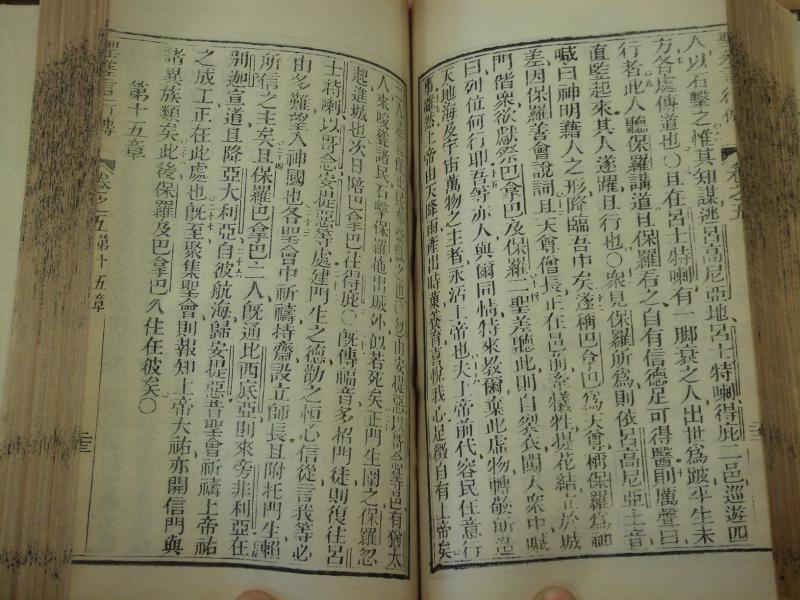 人以石擊之惟其知謀逃呂高尼亞地呂士特喇得庇二邑巡遊四
方各處傳道也〇且在呂士特喇有一脚衰之人出世爲跛平生未
行者此人聽保羅講道且保羅看之自有信德足可得醫則厲聲曰
直竪起來其人遂躍且行也〇衆見保羅所爲則依呂高尼亞土音
喊曰神明藉人之形降臨吾中矣遂稱巴拿巴爲天尊稱保羅爲神
差因保羅善會說詞且天尊僧長正在邑前牽犧牲提花結立於城
門偕衆欲獻祭巴拿巴及保羅二聖差聽此則自裂衣闖人衆中喊
曰列位何行耶吾等亦人與爾同情特來教爾棄此虛物轉敬所造
天地海及宇宙萬物之主者永活上帝也夫上帝前代容民任意行
雖然上帝由天降雨產出時菓養育喜悅我心足徵自有上帝矣
忽由安提惡以哥念等邑有猶太
人來唆聳諸民石擊保羅拖出城外似若死矣正門生圍之保羅忽
起進城也次日陪巴拿巴往得庇〇旣傳福音多招門徒則復往呂
士特喇以哥念安提惡等處建門生之德勸之恒心信從言我等必
由多難望入神國也各聖會中祈禱持齋設立師長且附托門生賴
所信之主矣且保羅巴拿巴二人旣通比西底亞則來旁非利亞在
别迦宣道且降亞大利亞自彼航海歸安提惡昔聖會祈禱上帝祐
之成工正在此處也旣至聚集聖會則報知上帝大祐亦開信門與
諸異族類矣此後保羅及巴拿巴久住在彼矣〇
第十五章
卷之五第十五章